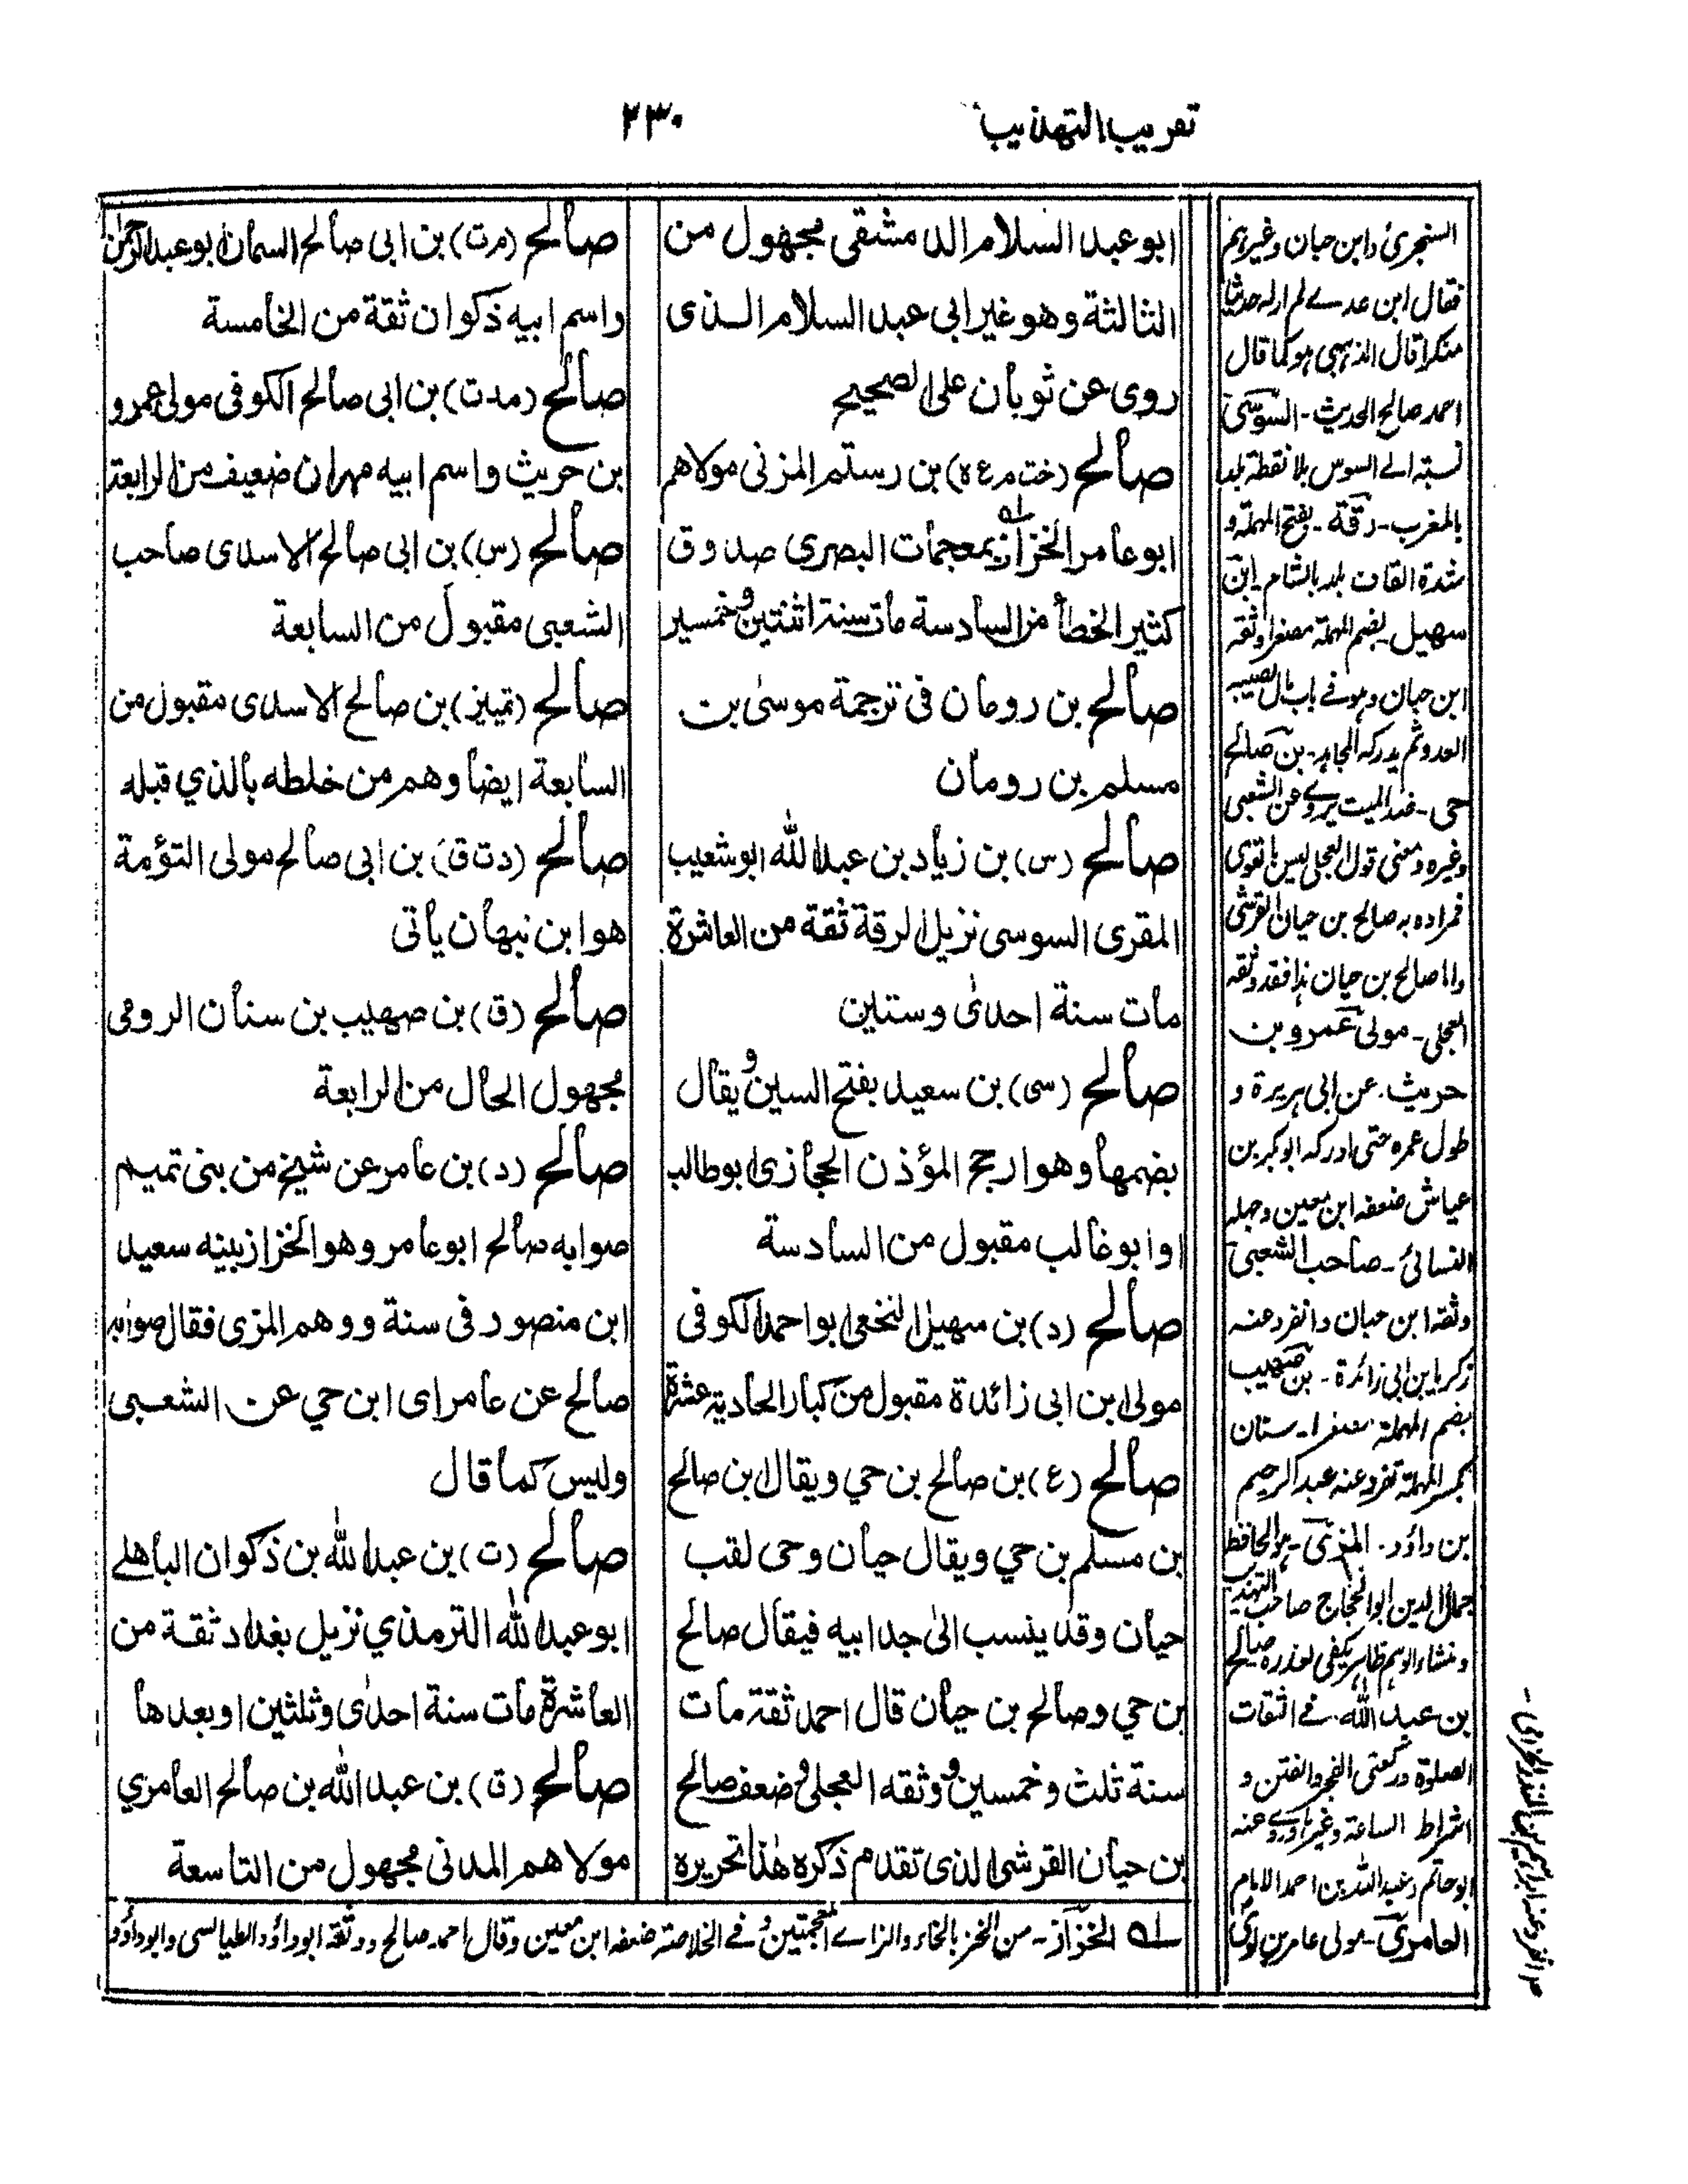 تقريب التهذيب
٢٣٠
ابو عبد السلام الدمشقى مجهول من
الثالثة وهو غير ابى عبد السلام الذى
روى عن ثوبان على الصحيح
صالح (خت م ع ه) بن رستم المزنى مولاهم
ابو عامر الخزاز بمعجمات البصرى صدوق
كثير الخطأ من السادسة مات سنة اثنتين وخمسين
صالح بن رومان فى ترجمة موسىٰ بن
مسلم بن رومان
صالح (س) بن زياد بن عبد الله ابو شعيب
المقرى السوسى نزيل الرقة ثقة من العاشرة
مات سنة احدىٰ وستين
صالح (سى) بن سعيد بفتح السين ويقال
بضمها وهو ارجح المؤذن الحجازى ابو طالب
او ابو غالب مقبول من السادسة
صالح (د) بن سهيل النخعى ابو احمد الكوفى
مولى ابن ابى زائدة مقبول من كبار الحادية عشرة
صالح (ع) بن صالح بن حي ويقال ابن صالح
بن مسلم بن حي ويقال حيان وحى لقب
حيان وقد ينسب الىٰ جد ابيه فيقال صالح
بن حي وصالح بن حيان قال احمد ثقة مات
سنة ثلث وخمسين ووثقه العجلى وضعف صالح
بن حيان القرشى الذى تقدم ذكره هٰذا تحريره
صالح (مرت) بن ابى صالح السمان ابو عبد الرحمن
واسم ابيه ذكوان ثقة من الخامسة
صالح (مدت) بن ابى صالح الكوفى مولى عمرو
بن حريث واسم ابيه مهران ضعيف من الرابعة
صالح (س) بن ابى صالح الاسدى صاحب
الشعبى مقبول من السابعة
صالح (تمييز) بن صالح الاسدى مقبول من
السابعة ايضا وهم من خلطه بالذي قبله
صالح (دت ق) بن ابى صالح مولى التؤمة
هو ابن نبهان يأتى
صالح (ق) بن صهيب بن سنان الرومى
مجهول الحال من الرابعة
صالح (د) بن عامر عن شيخ من بنى تميم
صوابه صالح ابو عامر وهو الخزاز بينه سعيد
ابن منصور فى سنة ووهم المزى فقال صوابه
صالح عن عامر اى ابن حي عن الشعبى
وليس كما قال
صالح (ت) بن عبد الله بن ذكوان الباهلے
ابو عبد الله الترمذي نزيل بغداد ثقة من
العاشرة مات سنة احدىٰ وثلثين او بعدها
صالح (ق) بن عبد الله بن صالح العامري
مولاهم المدنى مجهول من التاسعة
السنجرى وابن حبان وغيرهم
فقال ابن عدے لم ار له حديثا
منكرا قال الذهبى هو كما قال
احمد صالح الحديث - السوسى
نسبة الے السوس بلا نقطة بلد
بالمغرب - رقة - بفتح المهملة و
شدة القاف بلد بالشام - ابن
سهيل - بضم المهملة مصغرا وثقه
ابن حبان وهو فے باب
العدو ثم يدركه المجاهد - بن صالح
حى - ضد الميت يروے عن الشعبى
وغيره ومعنى قول العجلى ليس بالقوى
فمراده به صالح بن حيان القرشى
واما صالح بن حيان هذا فقد وثقه
العجلى - مولى عمرو بن
حريث - عن ابى هريرة و
طول عمره حتى ادركه ابو بكر بن
عياش ضعفه ابن معين وجهله
النسائى - صاحب الشعبى
وثقه ابن حبان وانفرد عنه
زكريا بن ابى زائدة - بن صهيب
بضم المهملة مصغرا - سنان
بكسر المهملة تفرد عنه عبد الرحيم
بن داؤد - المزى - هو الحافظ
جمال الدين ابو الحجاج صاحب التهذيب
ومنشاء الوهم ظاهر يكفى لعذره صالح
بن عبد الله - فے الثقات
الصلوة وركعتى الفجر والفتن و
اشراط الساعة وغيرها وروے عنه
ابو حاتم وعبد الله بن احمد الامام
العامرى - مولى عامر بن لوى
له الخزاز - من الخز بالخاء والزاے المعجمتين فے الخلاصة ضعفه ابن معين وقال احمد صالح ووثقه ابو داؤد الطيالسى وابو داؤد